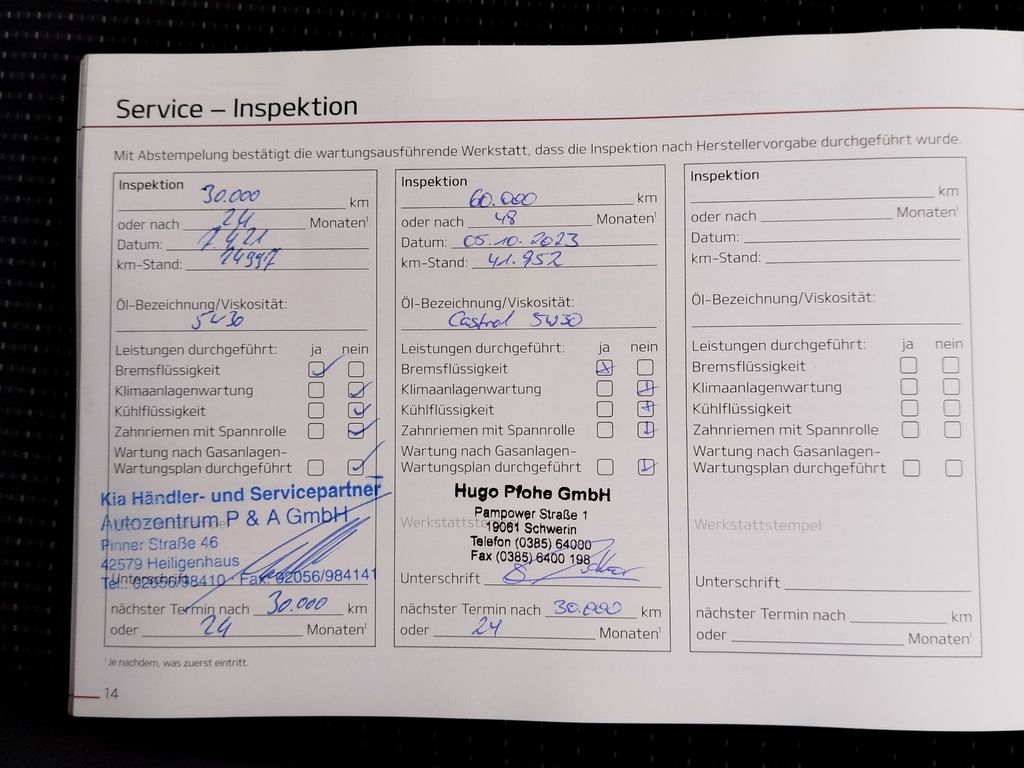 Service – Inspektion
Mit Abstempelung bestätigt die wartungsausführende Werkstatt, dass die Inspektion nach Herstellervorgabe durchgeführt wurde.
Inspektion
30.000 km
oder nach 24 Monaten¹
Datum: 7.4.21
km-Stand: 24997
Öl-Bezeichnung/Viskosität:
5W30
Leistungen durchgeführt: ja nein
Bremsflüssigkeit
Klimaanlagenwartung
Kühlflüssigkeit
Zahnriemen mit Spannrolle
Wartung nach Gasanlagen-
Wartungsplan durchgeführt
Kia Händler- und Servicepartner
Autozentrum P & A GmbH
Pinner Straße 46
42579 Heiligenhaus
Tel.: 02056/98410 · Fax: 02056/984141
Unterschrift
nächster Termin nach 30.000 km
oder 24 Monaten¹
Inspektion
60.000 km
oder nach 48 Monaten¹
Datum: 05.10.2023
km-Stand: 41.952
Öl-Bezeichnung/Viskosität:
Castrol 5W30
Leistungen durchgeführt: ja nein
Bremsflüssigkeit
Klimaanlagenwartung
Kühlflüssigkeit
Zahnriemen mit Spannrolle
Wartung nach Gasanlagen-
Wartungsplan durchgeführt
Hugo Pfohe GmbH
Pampower Straße 1
Werkstattstempel
19061 Schwerin
Telefon (0385) 64000
Fax (0385) 6400 198
Unterschrift
nächster Termin nach 30.000 km
oder 24 Monaten¹
Inspektion
km
oder nach Monaten¹
Datum:
km-Stand:
Öl-Bezeichnung/Viskosität:
Leistungen durchgeführt: ja nein
Bremsflüssigkeit
Klimaanlagenwartung
Kühlflüssigkeit
Zahnriemen mit Spannrolle
Wartung nach Gasanlagen-
Wartungsplan durchgeführt
Werkstattstempel
Unterschrift
nächster Termin nach km
oder Monaten¹
¹Je nachdem, was zuerst eintritt.
14